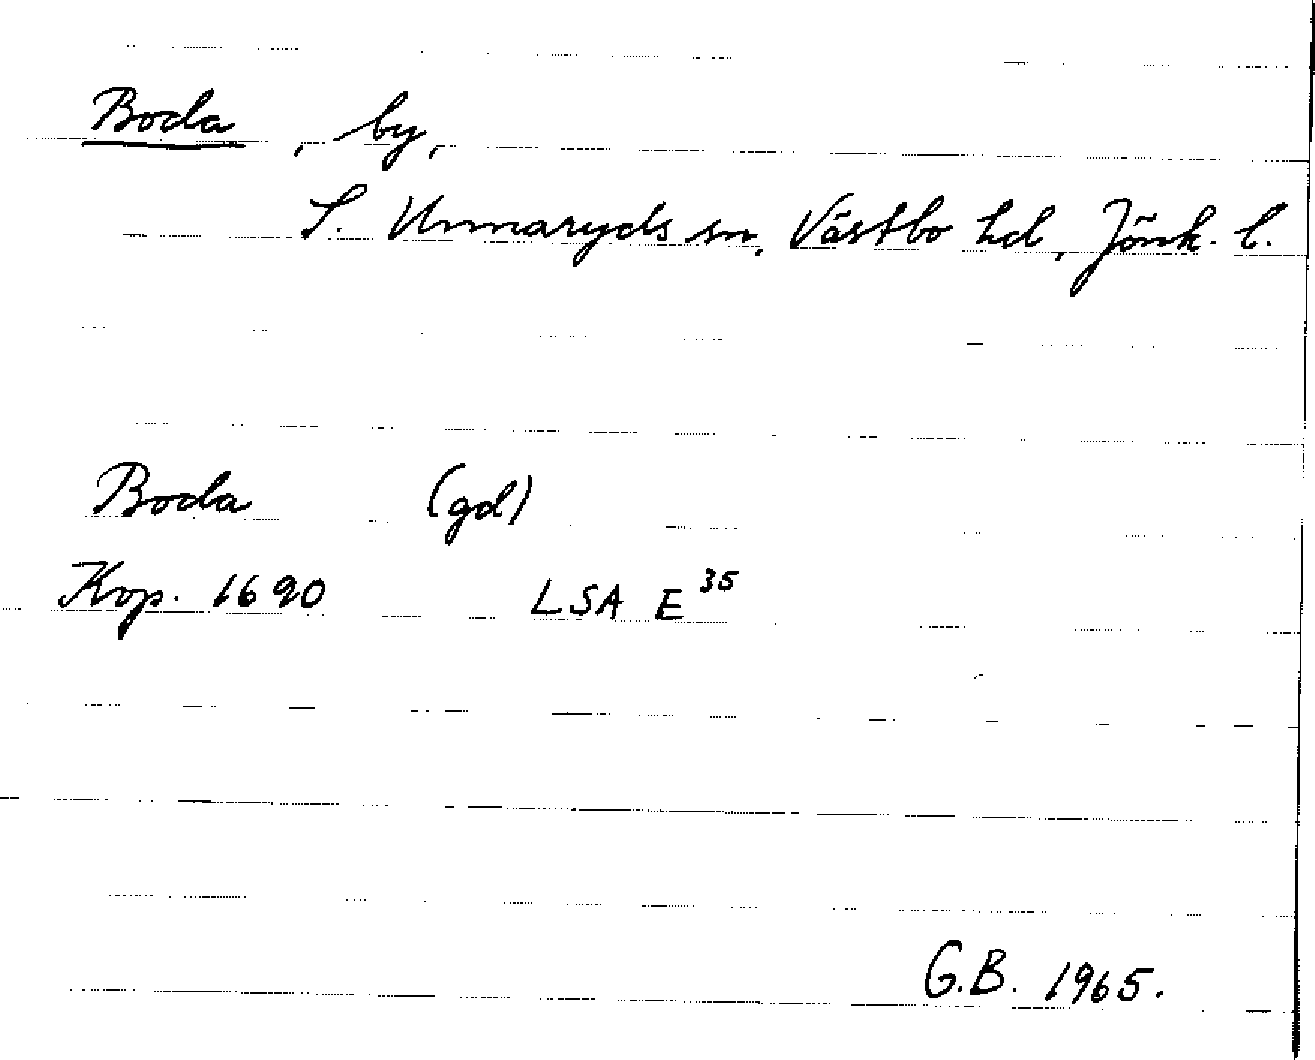 Boda, by,
S. Unnaryds sn, Västbo hd, Jönk. l.
Boda (gd)
Kop. 1690 LSA E 35
G.B. 1965.